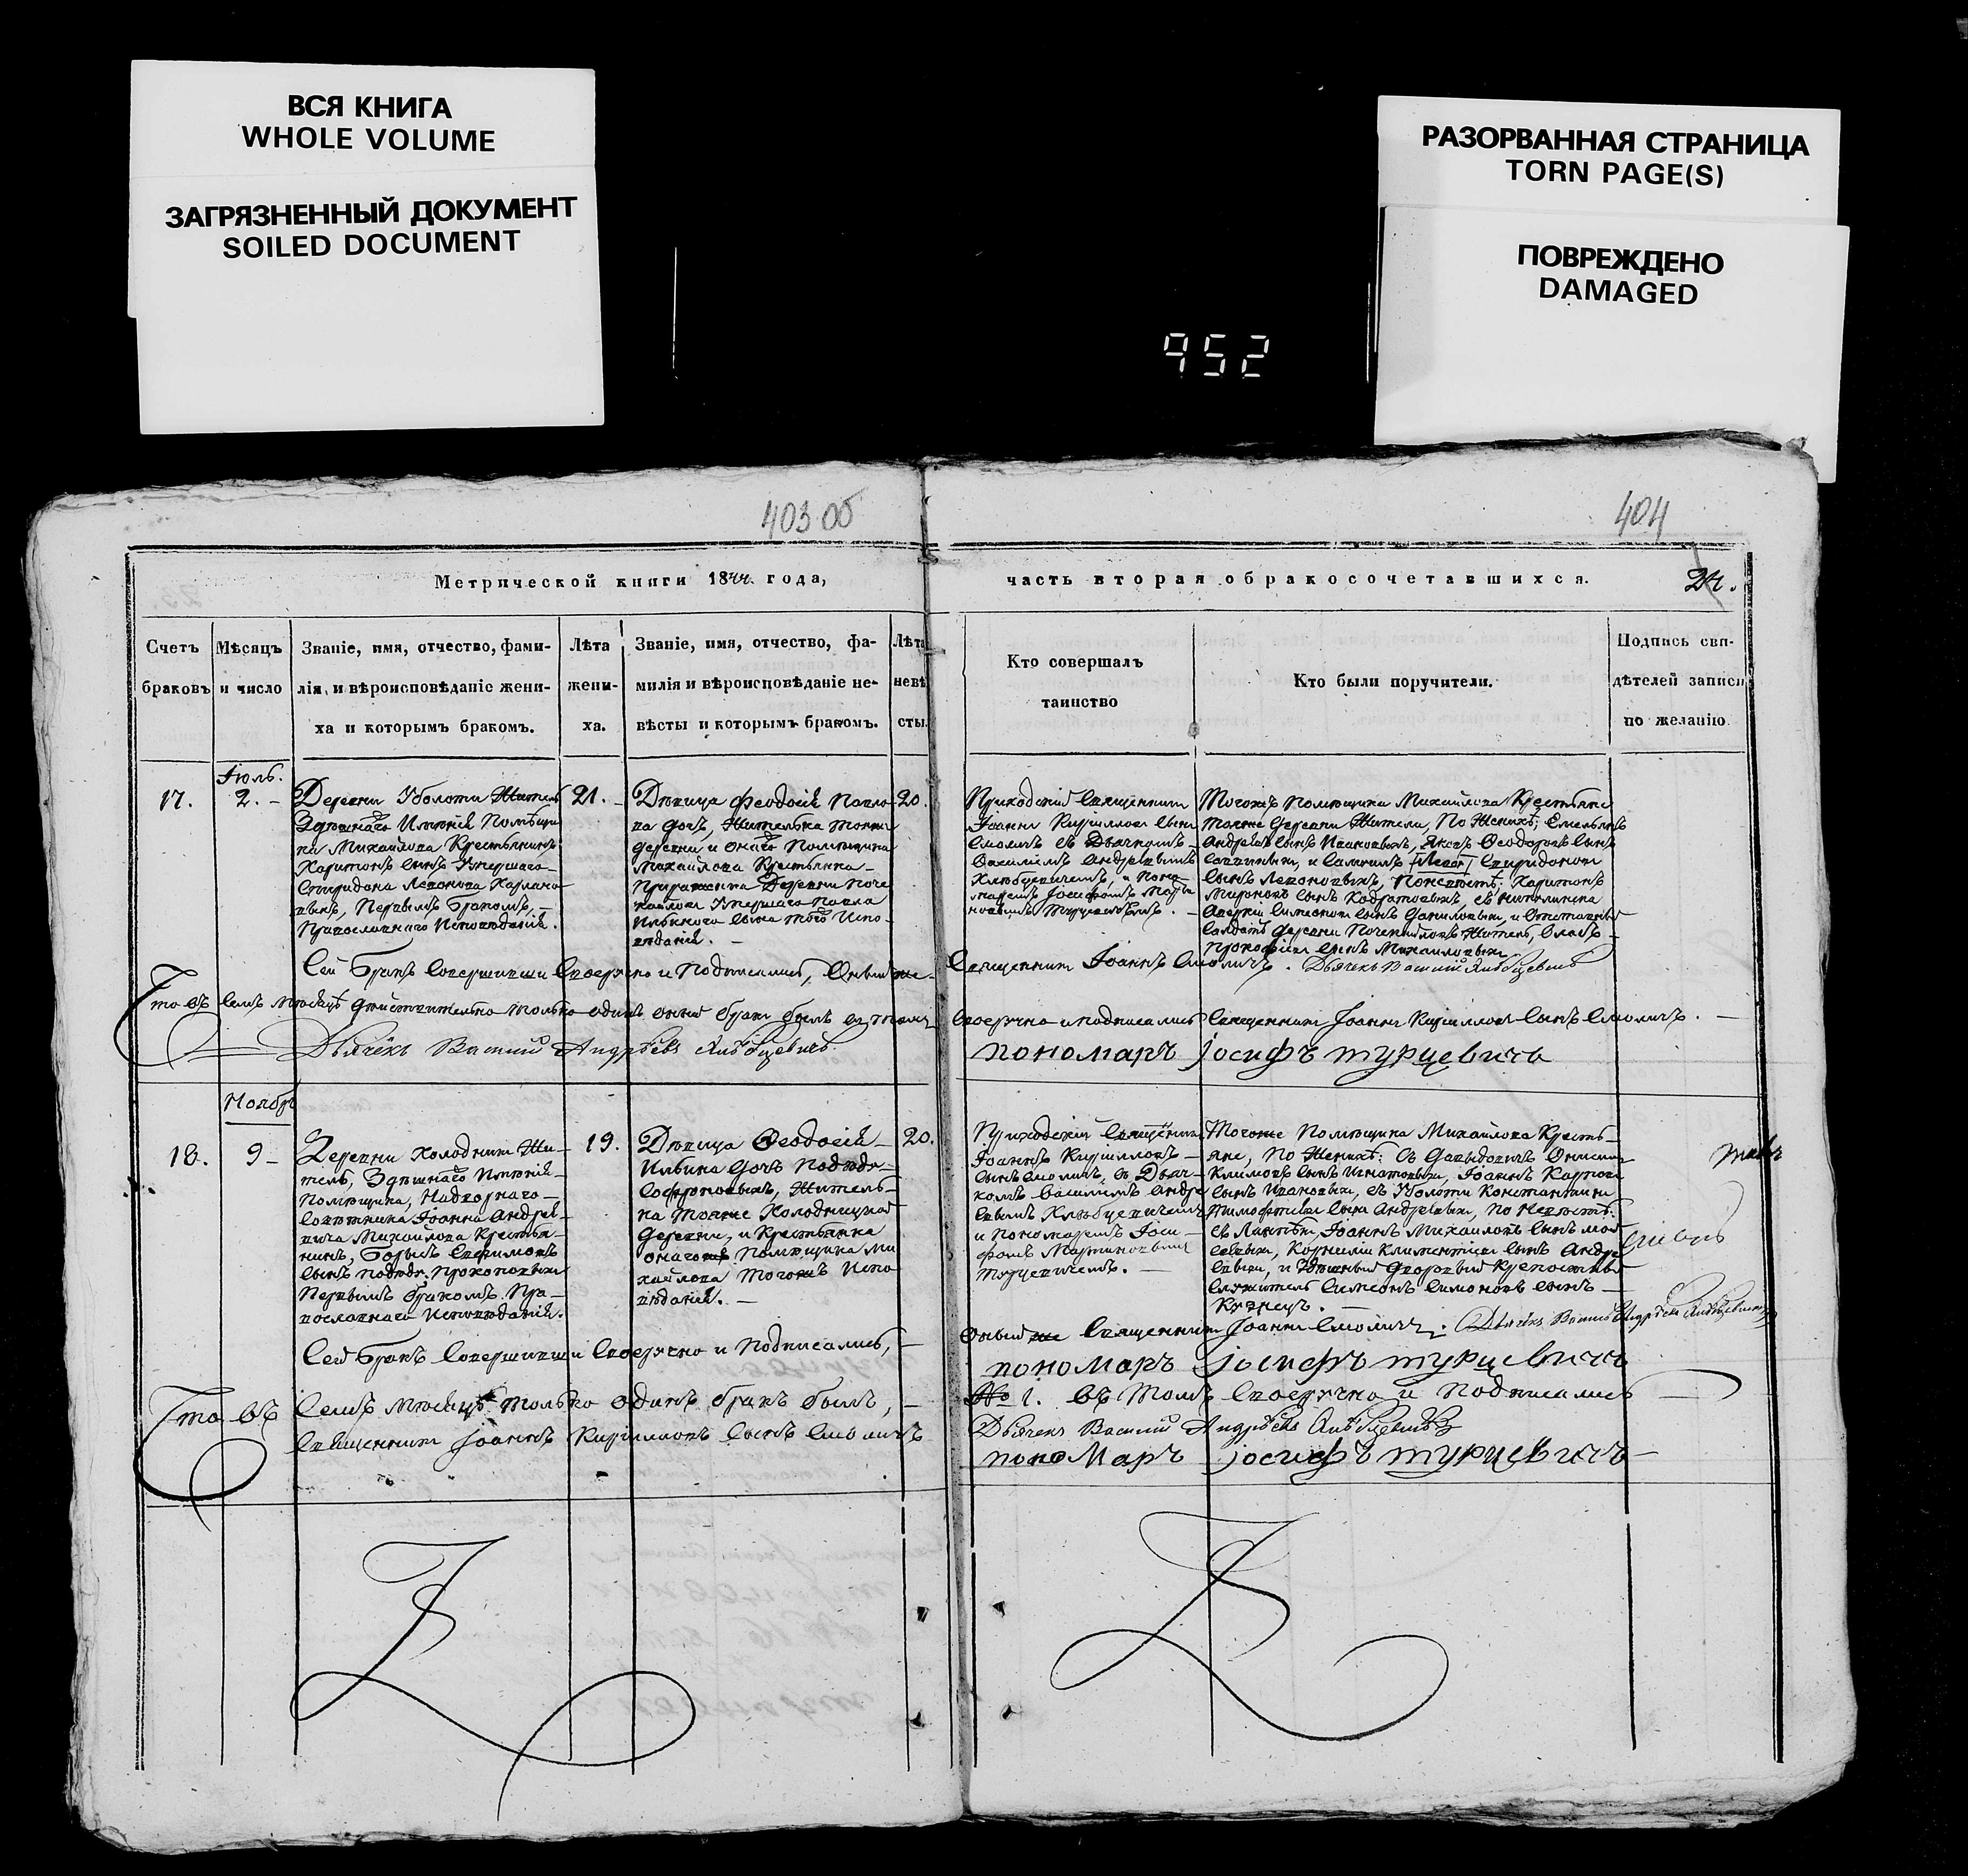 ВСЯ КНИГА
WHOLE VOLUME
ЗАГРЯЗНЕННЫЙ ДОКУМЕНТ
SOILED DOCUMENT
РАЗОРВАННАЯ СТРАНИЦА
TORN PAGE(S)
ПОВРЕЖДЕНО
DAMAGED
952
403 об
404
Метрической книги 1844 года,
часть вторая о бракосочетавшихся.
24.
Счетъ
браковъ
Мѣсяцъ
и число
Званіе, имя, отчество, фами-
лія, и вѣроисповѣданіе жени-
ха и которымъ бракомъ.
Лѣта
жени-
ха.
Званіе, имя, отчество, фа-
милія и вѣроисповѣданіе не-
вѣсты и которымъ бракомъ.
Лѣта
невѣ
сты.
Кто совершалъ
таинство
Кто были поручители.
Подпись сви-
дѣтелей записи
по желанію
17.
Іюль.
2. –
Деревни Уболоти Житель
Здѣшнаго Имѣнія Помѣщи
ка Михайлова Крестьянинъ
Харитонъ сынъ Умершаго
Спиридона
Первымъ Бракомъ, –
Православнаго Исповѣданія.
21. –
Дѣвица Феодосія Павло
ва дочь, Жителька тояже
деревни и онаго Помѣщика
Михайлова Крестьянка –
Деревни Поче
Умершаго Павла
сына того Испо
вѣданія. –
20.
Приходскій Священникъ
Іоаннъ Кирилловъ сынъ
Смоличъ съ Дьячкомъ –
Василіемъ Андреевымъ
Хлѣбцевичемъ, и Поно
маремъ Іосифомъ Марти
новымъ Турцевичемъ. –
Тогожъ Помѣщика Михайлова Крестьяне
тояже деревни Жители, По Женихѣ; Емельянъ
Андреевъ сынъ Ивановыхъ, Яковъ Феодоровъ сынъ
Спиридоновъ
сынъ Леоновыхъ, По невѣстѣ: Харитонъ
Мироновъ сынъ
сынъ Даниловыхъ, и Отставный
Солдатъ деревни Житель,
Прокофіевъ сынъ Михайловыхъ
Сей Бракъ Совершивши Своеручно и Подписались, Оныйже
Священникъ Іоаннъ Смоличъ. Дьячекъ Василій Хлѣбцевичъ
Что въ семъ Мѣсяцѣ дѣйствительно только одинъ оный бракъ былъ въ томъ
Своеручно и подписались Священникъ Іоаннъ Кирилловъ Сынъ Смоличъ. –
Дьячекъ Василій Андрѣевъ Хлѣбцевичъ
пономаръ іосифъ турцевичъ
Ноябрь
18.
9 –
Деревни Холодники Жи-
тель, Здѣшнаго Имѣнія –
Помѣщика, Надворнаго –
Совѣтника Іоанна Андре-
вича Михайлова Крестья-
нинъ, Борысъ Евфимовъ
сынъ
Первымъ бракомъ. Пра-
вославнаго Исповѣданія.
19.
Дѣвица Феодосія –
Ильина дочь
Софроновыхъ, Житель-
ка тояже Холодницкой
деревни, и Крестьянка
онагоже Помѣщика Ми
хайлова тогожъ Испо
вѣданія. –
20.
Приходскій Священникъ
Іоаннъ Кирилловъ –
сынъ Смоличъ, съ Дьяч-
комъ Василіемъ Андре
евымъ Хлѣбцевичемъ
и Пономаремъ Іоси-
фомъ Мартиновымъ
Турцевичемъ. –
Тогоже Помѣщика Михайлова Кресть-
яне, По Женихѣ:
Климовъ сынъ Игнатовыхъ, Іоаннъ Карповъ
сынъ Ивановыхъ, съ Уболоти Константинъ
Тимофѣевъ сынъ Андреевыхъ, По Невѣстѣ:
Іоаннъ Михайловъ сынъ
Корнилій Климентіевъ сынъ Андре
евыхъ, и дворовый крѣпостный
служитель Симеонъ Симоновъ сынъ –
Кузнецъ. –
Сей Бракъ Совершивши Своеручно и Подписались, –
Оныйже Священникъ Іоаннъ Смоличъ. Дьячекъ Василій Андрѣевъ Хлѣбцевичъ
пономаръ іосифъ турцевичъ
Что въ Семъ Мѣсяцѣ только одинъ бракъ былъ, –
№ 1. въ томъ Своеручно и Подписались
Священникъ Іоаннъ Кирилловъ Сынъ Смоличъ
Дьячекъ Василій Андрѣевъ Хлѣбцевичъ
пономаръ іосифъ турцевичъ